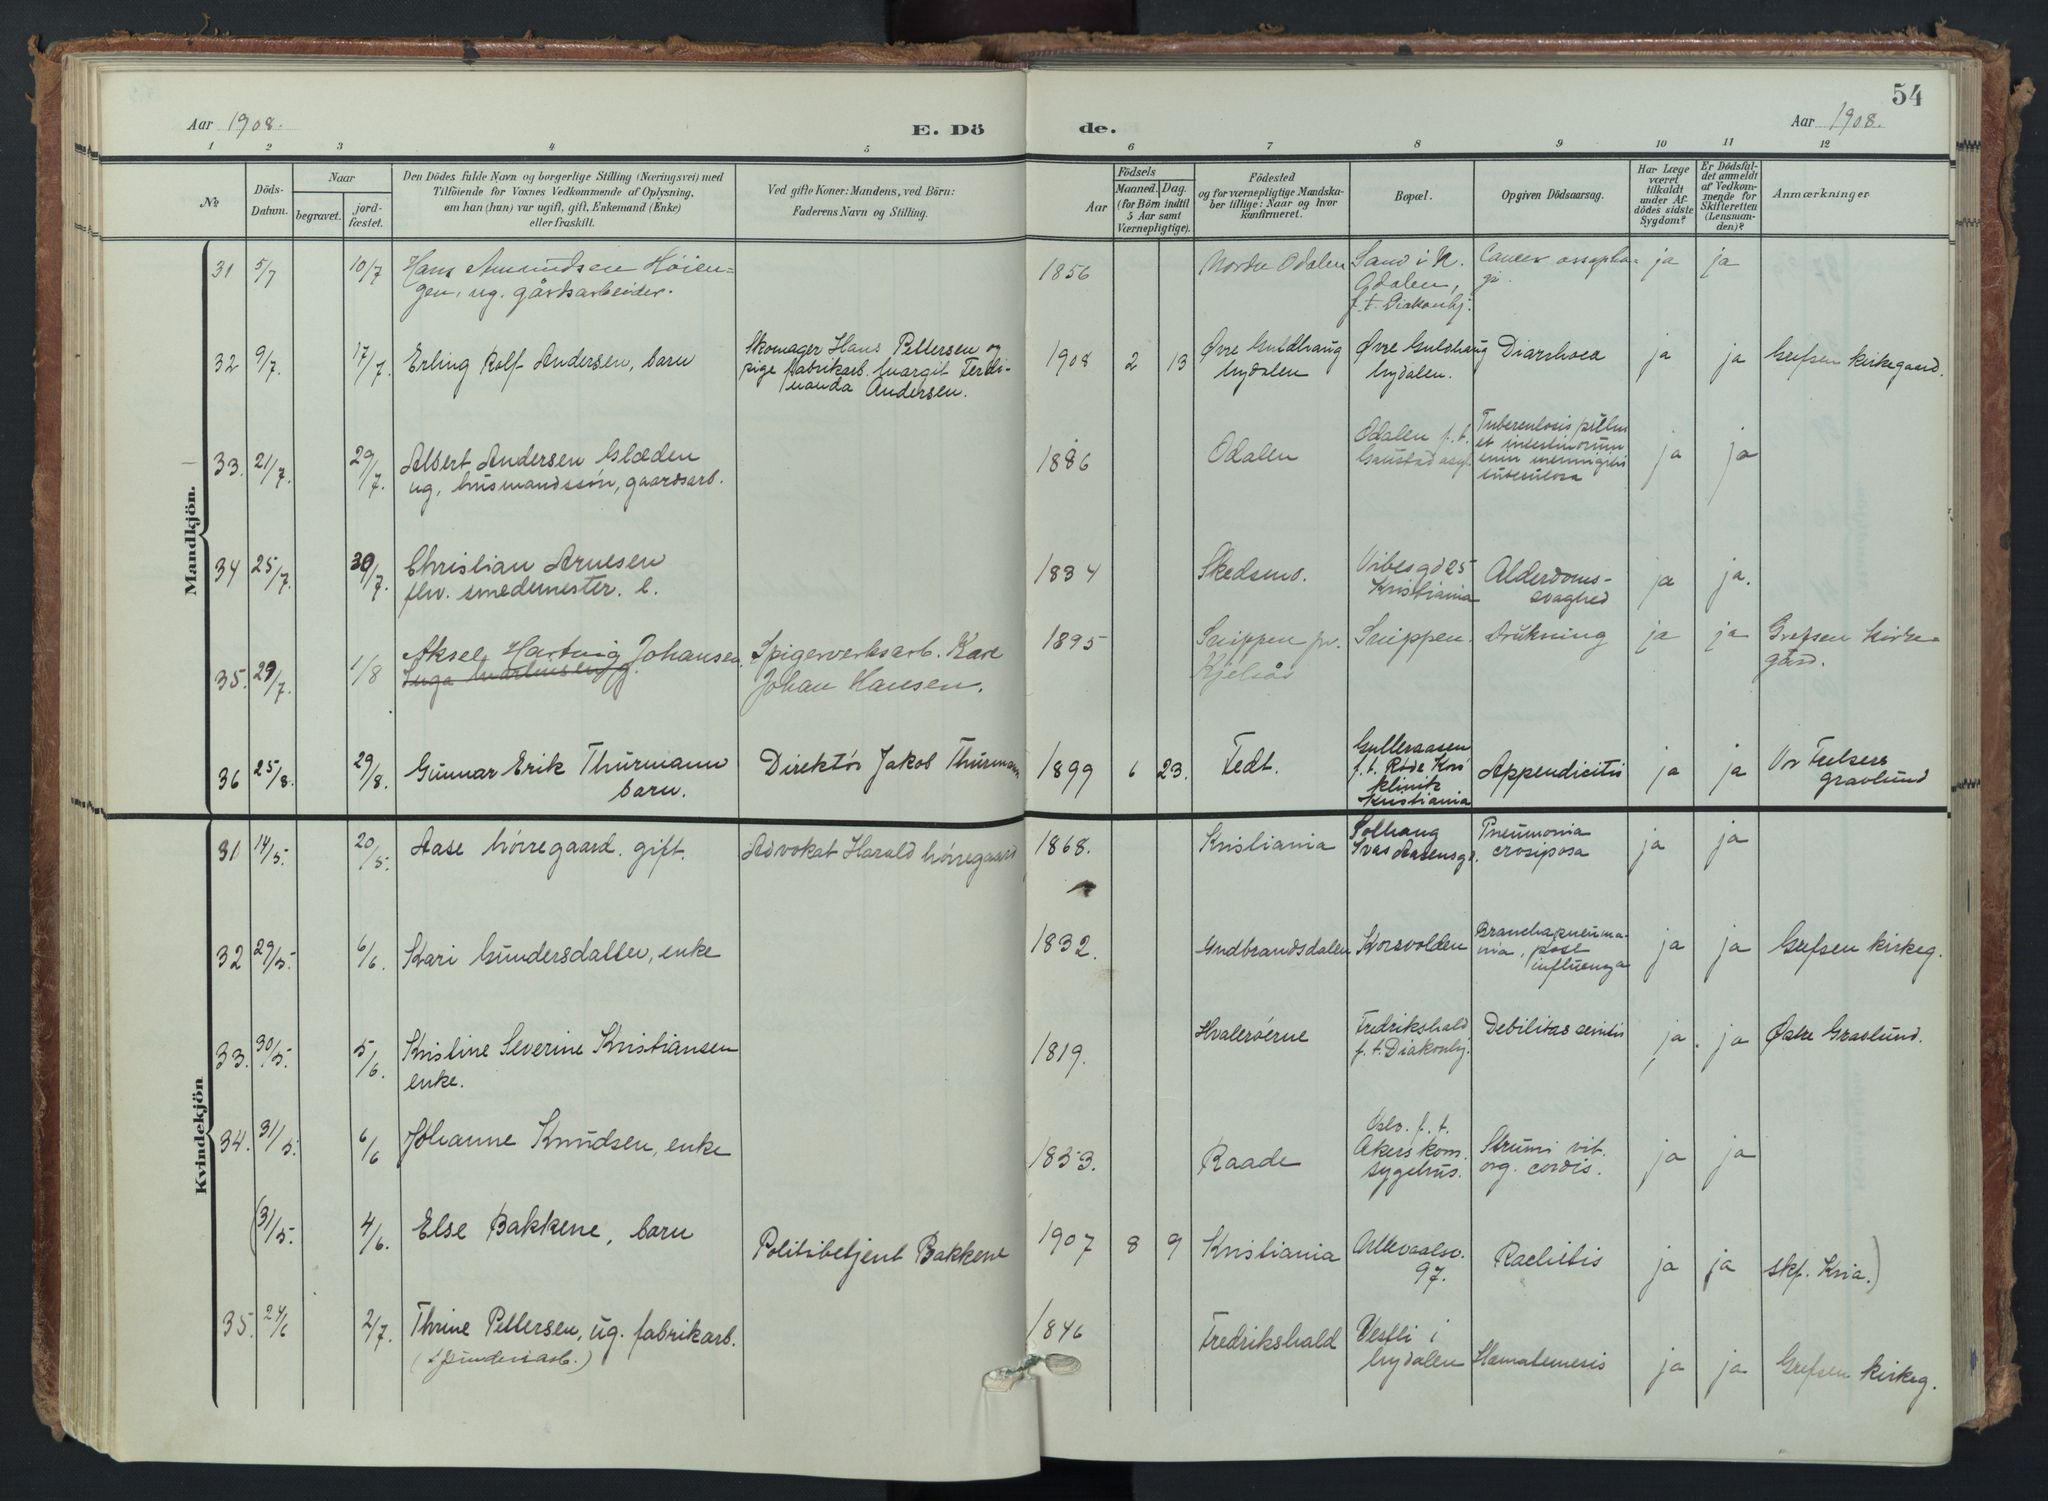 54
Aar 1908.
E. Dö
de.
Aar 1908.
1 2 3 4 5 6 7 8 9 10 11 12
№
Döds-
Datum.
Naar
begravet.
jord-
fæstet.
Den Dödes fulde Navn og borgerlige Stilling (Næringsvei) med
Tilföiende for Voxnes Vedkommende af Oplysning,
om han (hun) var ugift, gift, Enkemand (Enke)
eller fraskilt.
Ved gifte Koner: Mandens, ved Börn:
Faderens Navn og Stilling.
Aar
Födsels
Maaned. Dag.
(for Börn indtil
5 Aar samt
Værnepligtige).
Födested
og for værnepligtige Mandska-
ber tillige: Naar og hvor
konfirmeret.
Bopæl.
Opgiven Dödsaarsag.
Har Læge
været
tilkaldt
under Af-
dödes sidste
Sygdom?
Er Dödsfal-
det anmeldt
af Vedkom-
mende for
Skifteretten
(Lensman-
den)?
Anmærkninger
Mandkjön.
31 5/7 10/7 Hans Amundsen Høien-
gen, ug. gårdsarbeider.
1856 Nordre Odalen
Sand i N.
Odalen,
f. t. Diakonhj.
Cancer oesopha-
gi.
ja ja
32 9/7. 17/7. Erling Rolf Andersen, barn
Skomager Hans Pettersen og
pige fabrikarb. Margit Ferdi-
nanda Andersen.
1908 2 13
Øvre Guldhaug
Nydalen
Øvre Guldhaug
Nydalen.
Diarrhoea
ja ja Grefsen kirkegaard.
33. 21/7. 29/7. Albert Andersen Glæden
ug. husmandssøn, gaardsarb.
1886 Odalen
Odalen f. t.
Gaustad asyl.
Tuberculosis pulm
et intestinorum
cum meningitis
tuberculosa
ja ja
34 25/7. 30/7. Christian Arnesen
fhv. smedemester. e.
1834 Skedsmo.
Vibesgd 25
Kristiania
Alderdoms-
svaghed
ja ja.
35. 29/7. 1/8 Aksel Hartvig Johansen.
Spigerverksarb. Karl
Johan Hansen.
1895
Snippen pr.
Kjelsås
Snippen. Drukning
ja ja
Grefsen kirke-
gård.
36 25/8. 29/8. Gunnar Erik Thurmann
barn.
Direktør Jakob Thurmann
1899 6 23. Fedt.
Gulleraasen
f. t. Røde Kors
klinik
Kristiania
Appendicitis
ja ja
Vor Frelsers
gravlund
Kvindekjön
31 14/5. 20/5. Aase Nørregaard. gift.
Advokat Harald Nørregaard
1868. Kristiania
Solhaug
Ivar Aasensgd.
Pneumonia
ja ja
32 29/5. 6/6. Kari Gundersdatter, enke
1832. Gudbrandsdalen Korsvolden
Bronchopneumo-
nia, post
influenza
ja ja Grefsen kirkeg.
33. 30/5. 5/6. Kristine Severine Kristiansen
enke.
1819. Hvalerøerne
Fredrikshald
f. t. Diakonhj.
Debilitas senilis
ja. ja Østre Gravlund.
34. 31/5. 6/6 Johanne Knudsen, enke
1853. Raade
Oslo. f. t.
Akers kom.
sygehus.
Strumi vit.
org. cordis.
ja ja
(31/5. 4/6. Else Bakkene, barn
Politibetjent Bakkene
1907 8 9 Kristiania
97.
Rachitis
ja ja skf. Kria.)
35. 24/6 2/7. Thrine Pettersen, ug. fabrikarb.
(spinderiarb.)
1846 Fredrikshald
Vestli i
Nydalen
Hæmatemesis
ja ja Grefsen kirkeg.